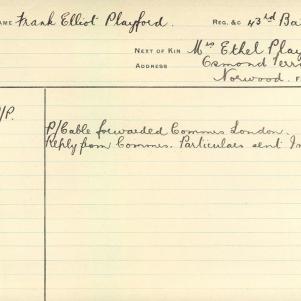 NAME Frank Elliot Playford. REG. &C 43rd Ba
NEXT OF KIN Mrs Ethel Play
ADDRESS Osmond Terr
Norwood.
/P.
P/Cable forwarded Commes London.
Reply from Commes. Particulars sent In